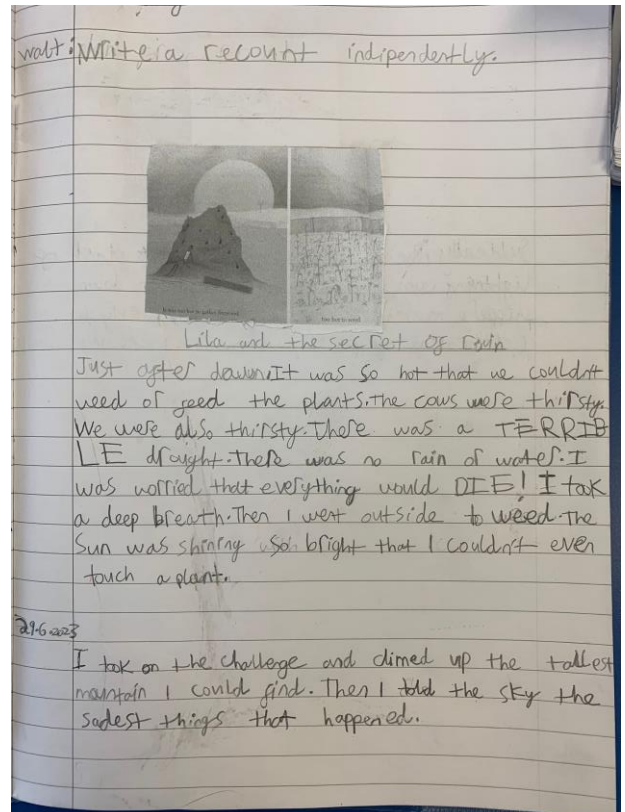 walt: Write a recount indipendently.
too hot to weed
Lila and the secret of rain
Just after dawn.It was so hot that we couldn't
weed or feed the plants.The cows were thirsty.
We were also thirsty.There was a TERRIB
LE draught.There was no rain or water.I
was worried that everything would DIE! I took
a deep breath.Then I went outside to weed.The
Sun was shining so bright that I couldn't even
touch a plant.
29.6.2023
I took on the challenge and climed up the tallest
mountain I could find. Then I told the sky the
sadest things that happened.